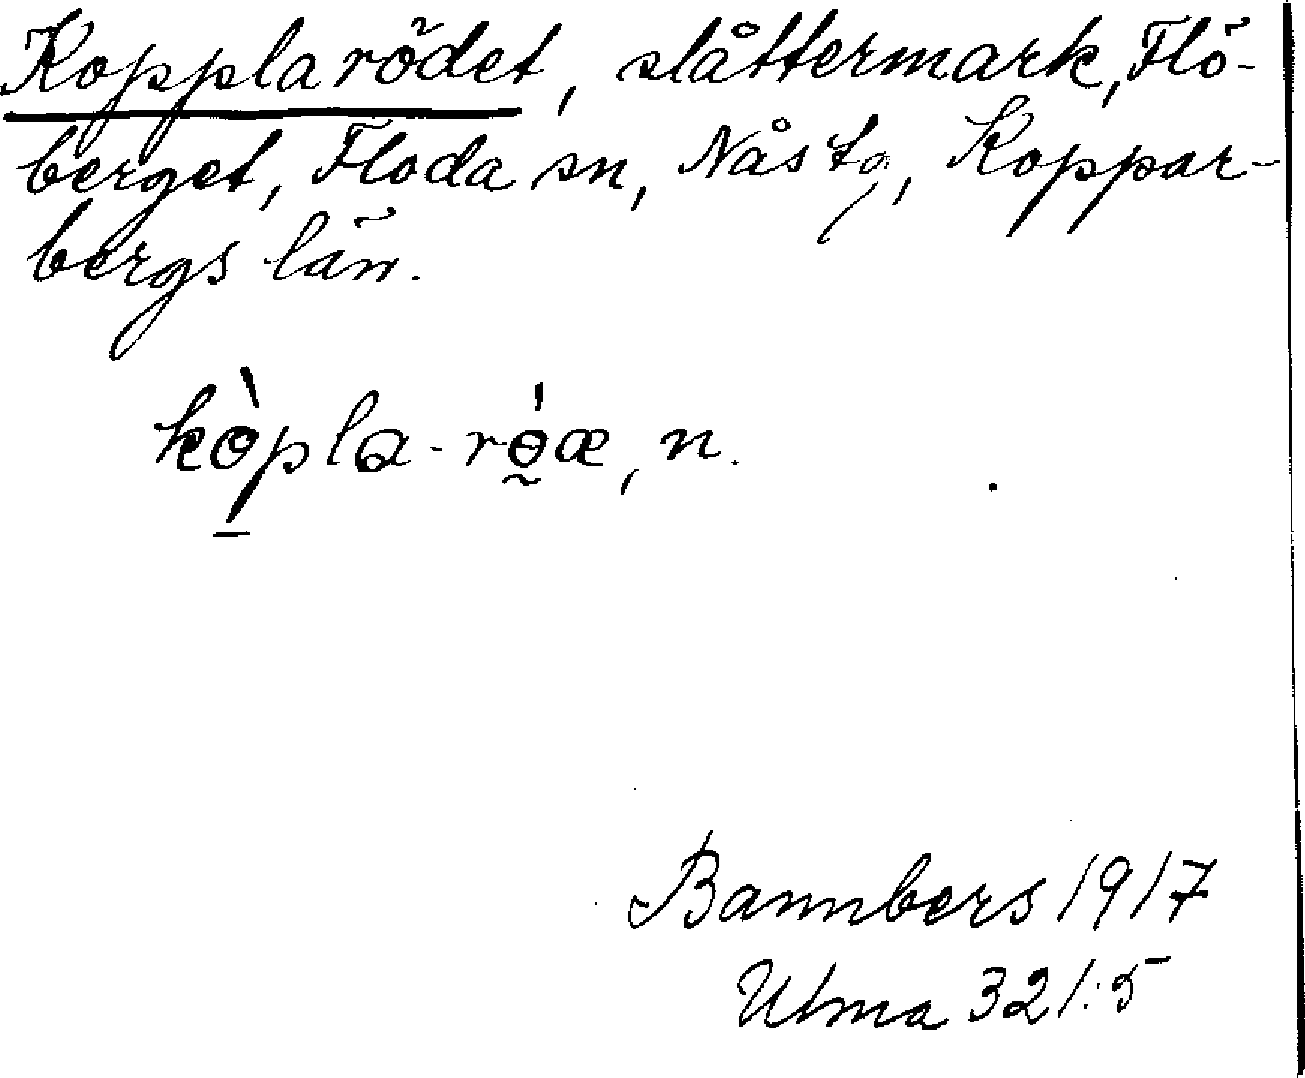 Kopplarödet, slåttermark, Flö-
berget, Floda sn, Nås tg, Koppar-
bergs län.
kòpla-rɵ́æ, n.
Bannbers 1917
Ulma 321:5